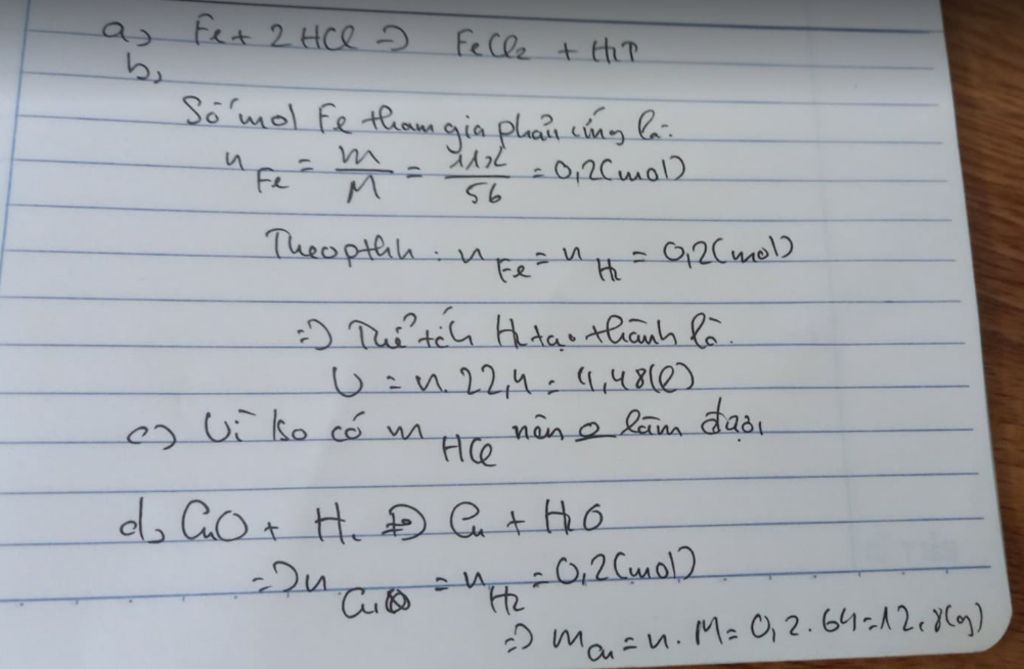 a, Fe + 2 HCl => FeCl2 + H2↑
b,
Số mol Fe tham gia phản ứng là:
n Fe = m/M = 11,2/56 = 0,2 (mol)
Theo pthh : n Fe = n H2 = 0,2 (mol)
=> Thể tích H2 tạo thành là.
V = n. 22,4 = 4,48 (l)
c) Vì ko có m HCl nên o làm được
d, CuO + H2 => Cu + H2O
=> n Cu = n H2 = 0,2 (mol)
=> m Cu = n. M = 0,2. 64 = 12,8 (g)